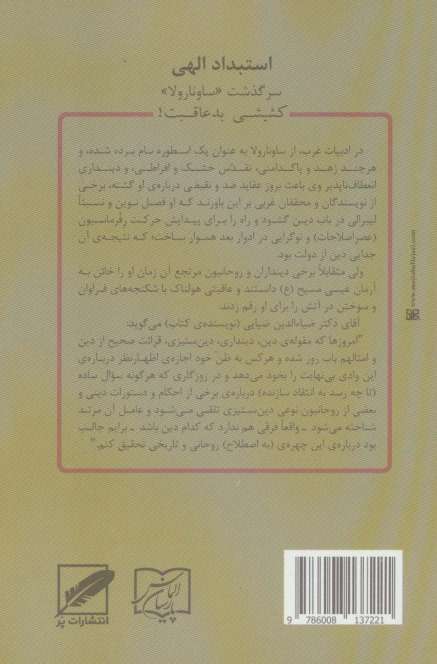 استبداد الهی
سرگذشت «ساونارولا»
کشیشی بدعاقبت!
در ادبیات غرب، از ساونارولا به عنوان یک اسطوره نام برده شده، و
هرچند زهد و پاکدامنی، تقدّس خشک و افراطی، و دینداری
انعطاف‌ناپذیر وی باعث بروز عقاید ضد و نقیضی درباره‌ی او گشته، برخی
از نویسندگان و محققان غربی بر این باورند که او فصل نوین و نسبتاً
لیبرالی در باب دین گشود و راه را برای پیدایش حرکت رفُرماسیون
(عصر اصلاحات) و نوگرایی در ادوار بعد هموار ساخت؛ که نتیجه‌ی آن
جدایی دین از دولت بود.
ولی متقابلاً برخی دینداران و روحانیون مرتجع آن زمان او را خائن به
آرمان عیسی مسیح (ع) دانستند و عاقبتی هولناک با شکنجه‌های فراوان
و سوختن در آتش را برای او رقم زدند.
آقای دکتر ضیاءالدین ضیایی (نویسنده‌ی کتاب) می‌گوید:
"امروزها که مقوله‌ی دین، دینداری، دین‌ستیزی، قرائت صحیح از دین
و امثالهم باب روز شده و هرکس به ظن خود اجازه‌ی اظهارنظر درباره‌ی
این وادی بی‌نهایت را بخود می‌دهد و در روزگاری که هرگونه سؤال ساده
(تا چه رسد به انتقاد سازنده) درباره‌ی برخی از احکام و دستورات دینی و
بعضی از روحانیون نوعی دین‌ستیزی تلقی می‌شود و عامل آن مرتد
شناخته می‌شود ـ واقعاً فرقی هم ندارد که کدام دین باشد ـ برایم جالب
بود درباره‌ی این چهره‌ی (به اصطلاح) روحانی و تاریخی تحقیق کنم."
انتشارات پَر
البرز پارسیان
9 786008 137221